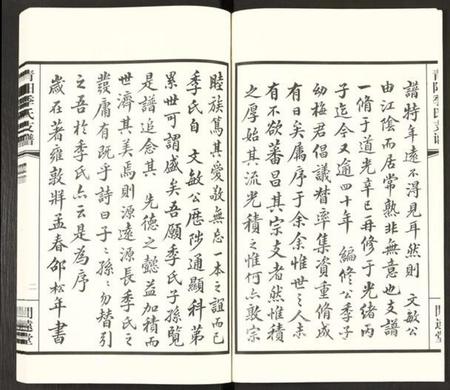 譜特年遠不得見耳然則　文敏公
由江陰而居常熟非無意也支譜
一脩于道光辛巳再修于光緒丙
子迄今又逾四十年　編修公季子
幼梅君倡議督率集資重脩成
有日矣屬序于余余惟世之人未
有不欲蕃昌其宗支者然惟積
之厚始其流光積之惟何亦敦宗
睦族篤其愛敬無忘一本之誼而已
季氏自　文敏公歷陟通顯科第
累世可謂盛矣吾願季氏子孫覽
是譜追念其　先德之懿益加積而
世濟其美焉則源遠流長季氏之
發庸有既乎詩曰子之孫之勿替引
之吾於季氏亦云是為序
歲在著雍敦牂孟春邵松年書
青陽季氏支譜
二